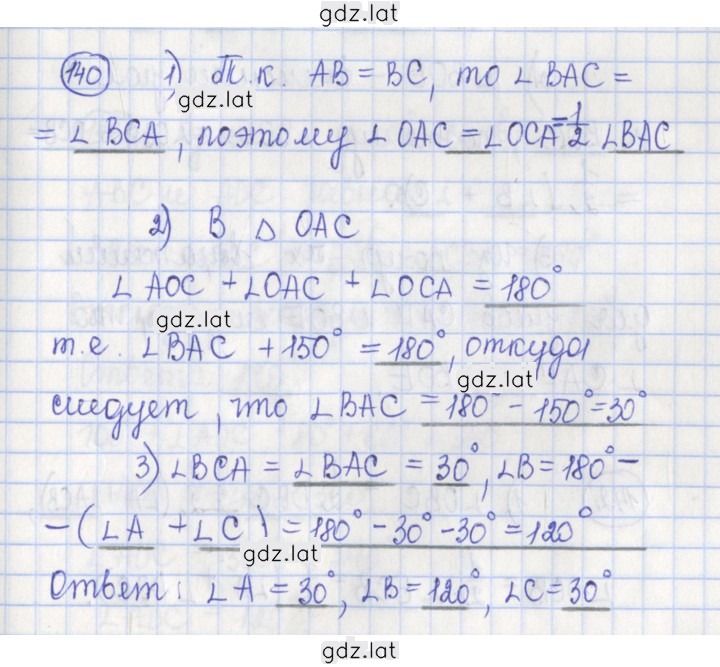 gdz.lat
140 1) Т.к. AB = BC, то ∠BAC =
gdz.lat
= ∠BCA, поэтому ∠OAC = ∠OCA = 1/2 ∠BAC
2) В △ OAC
∠AOC + ∠OAC + ∠OCA = 180°
gdz.lat
т.е. ∠BAC + 150° = 180°, откуда
gdz.lat
следует, что ∠BAC = 180° - 150° = 30°
3) ∠BCA = ∠BAC = 30°, ∠B = 180° -
- (∠A + ∠C) = 180° - 30° - 30° = 120°
gdz.lat
Ответ: ∠A = 30°, ∠B = 120°, ∠C = 30°
gdz.lat